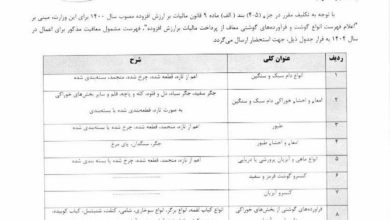 با توجه به تکلیف مقرر در جزء (۴۰۵) بند (الف) ماده ۹ قانون مالیات بر ارزش افزوده مصوب سال ۱۴۰۰ برای این وزارت، مبنی بر
"اعلام فهرست انواع گوشت و فرآورده‌های گوشتی معاف از پرداخت مالیات بر ارزش افزوده"، فهرست مشمول معافیت مذکور برای اعمال در
سال ۱۴۰۴ به قرار جدول ذیل، جهت استحضار ارسال می‌گردد.
ردیف عنوان کلی شرح
۱ انواع دام سبک و سنگین اعم از تازه، قطعه شده، چرخ شده، منجمد، بسته‌بندی شده
۲ امعاء و احشاء خوراکی دام سبک و سنگین جگر سفید، جگر سیاه، دل و قلوه، کله و پاچه، قلم و سایر بخش‌های خوراکی
به صورت تازه، قطعه شده یا بسته‌بندی
۳ طیور اعم از تازه، قطعه شده، چرخ شده، منجمد، بسته‌بندی شده
۴ امعاء و احشاء طیور جگر، سنگدان، پای مرغ
۵ انواع ماهی و آبزیان پرورشی یا دریایی اعم از تازه، قطعه شده، چرخ شده، منجمد، بسته بندی شده
۶ کنسرو گوشت قرمز و سفید
۷ کنسرو آبزیان
۸ فرآورده‌های گوشتی از بخش‌های خوراکی انواع کباب لقمه، انواع برگر، انواع سوخاری، شامی، کتلت، شنیتسل، کباب کوبیده،